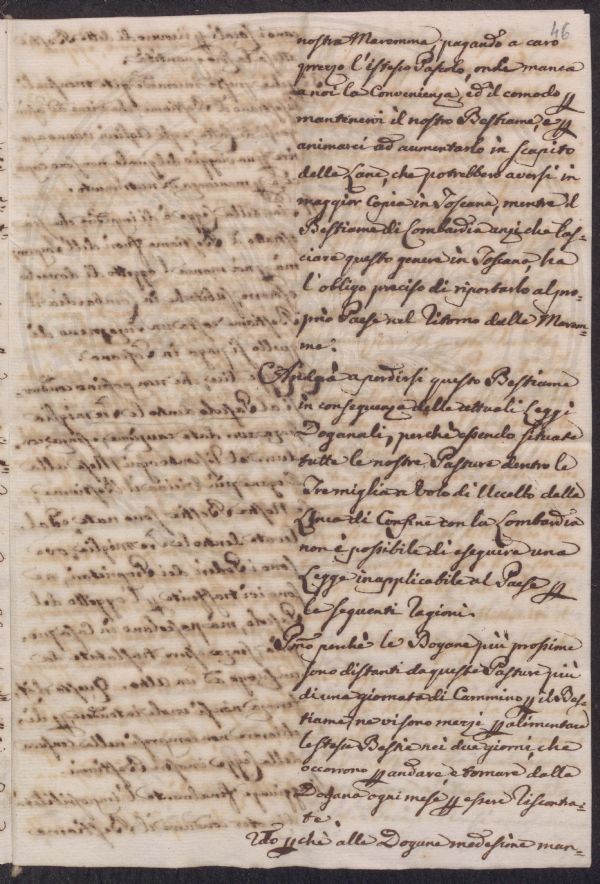 46
nostra Maremma, pagando a caro
prezzo l'istesso Pascolo, onde manca
a noi la Convenienza, ed il comodo p
mantenervi il nostro Bestiame, e p
animarci ad aumentarlo in scapito
delle Lane, che potrebbero aversi in
maggior Copia in Toscana, mentre il
Bestiame di Lombardia anzi che las=
ciare questo genere in Toscana, ha
l'obligo preciso di riportarlo al pro=
prio Paese nel ritorno dalle Marem=
me:
Anderà a perdersi questo Bestiame
in conseguenza delle attuali Leggi
Doganali, perchè essendo situate
tutte le nostre Pasture dentro le
Tre miglia a volo di Uccello dalla
Linea di Confine con la Lombardia
non è possibile di eseguire una
Legge inapplicabile al Paese p
le seguenti ragioni.
Pmo perchè le Dogane più prossime
sono distanti da queste Pasture più
di una giornata di Cammino p il Bes=
tiame, ne vi sono mezzi p alimentare
le stesse Bestie nei due giorni, che
occorrono p andare, e tornare dalla
Dogana ogni mese p essere riscontra=
te:
2do p chè alle Dogane medesime man=